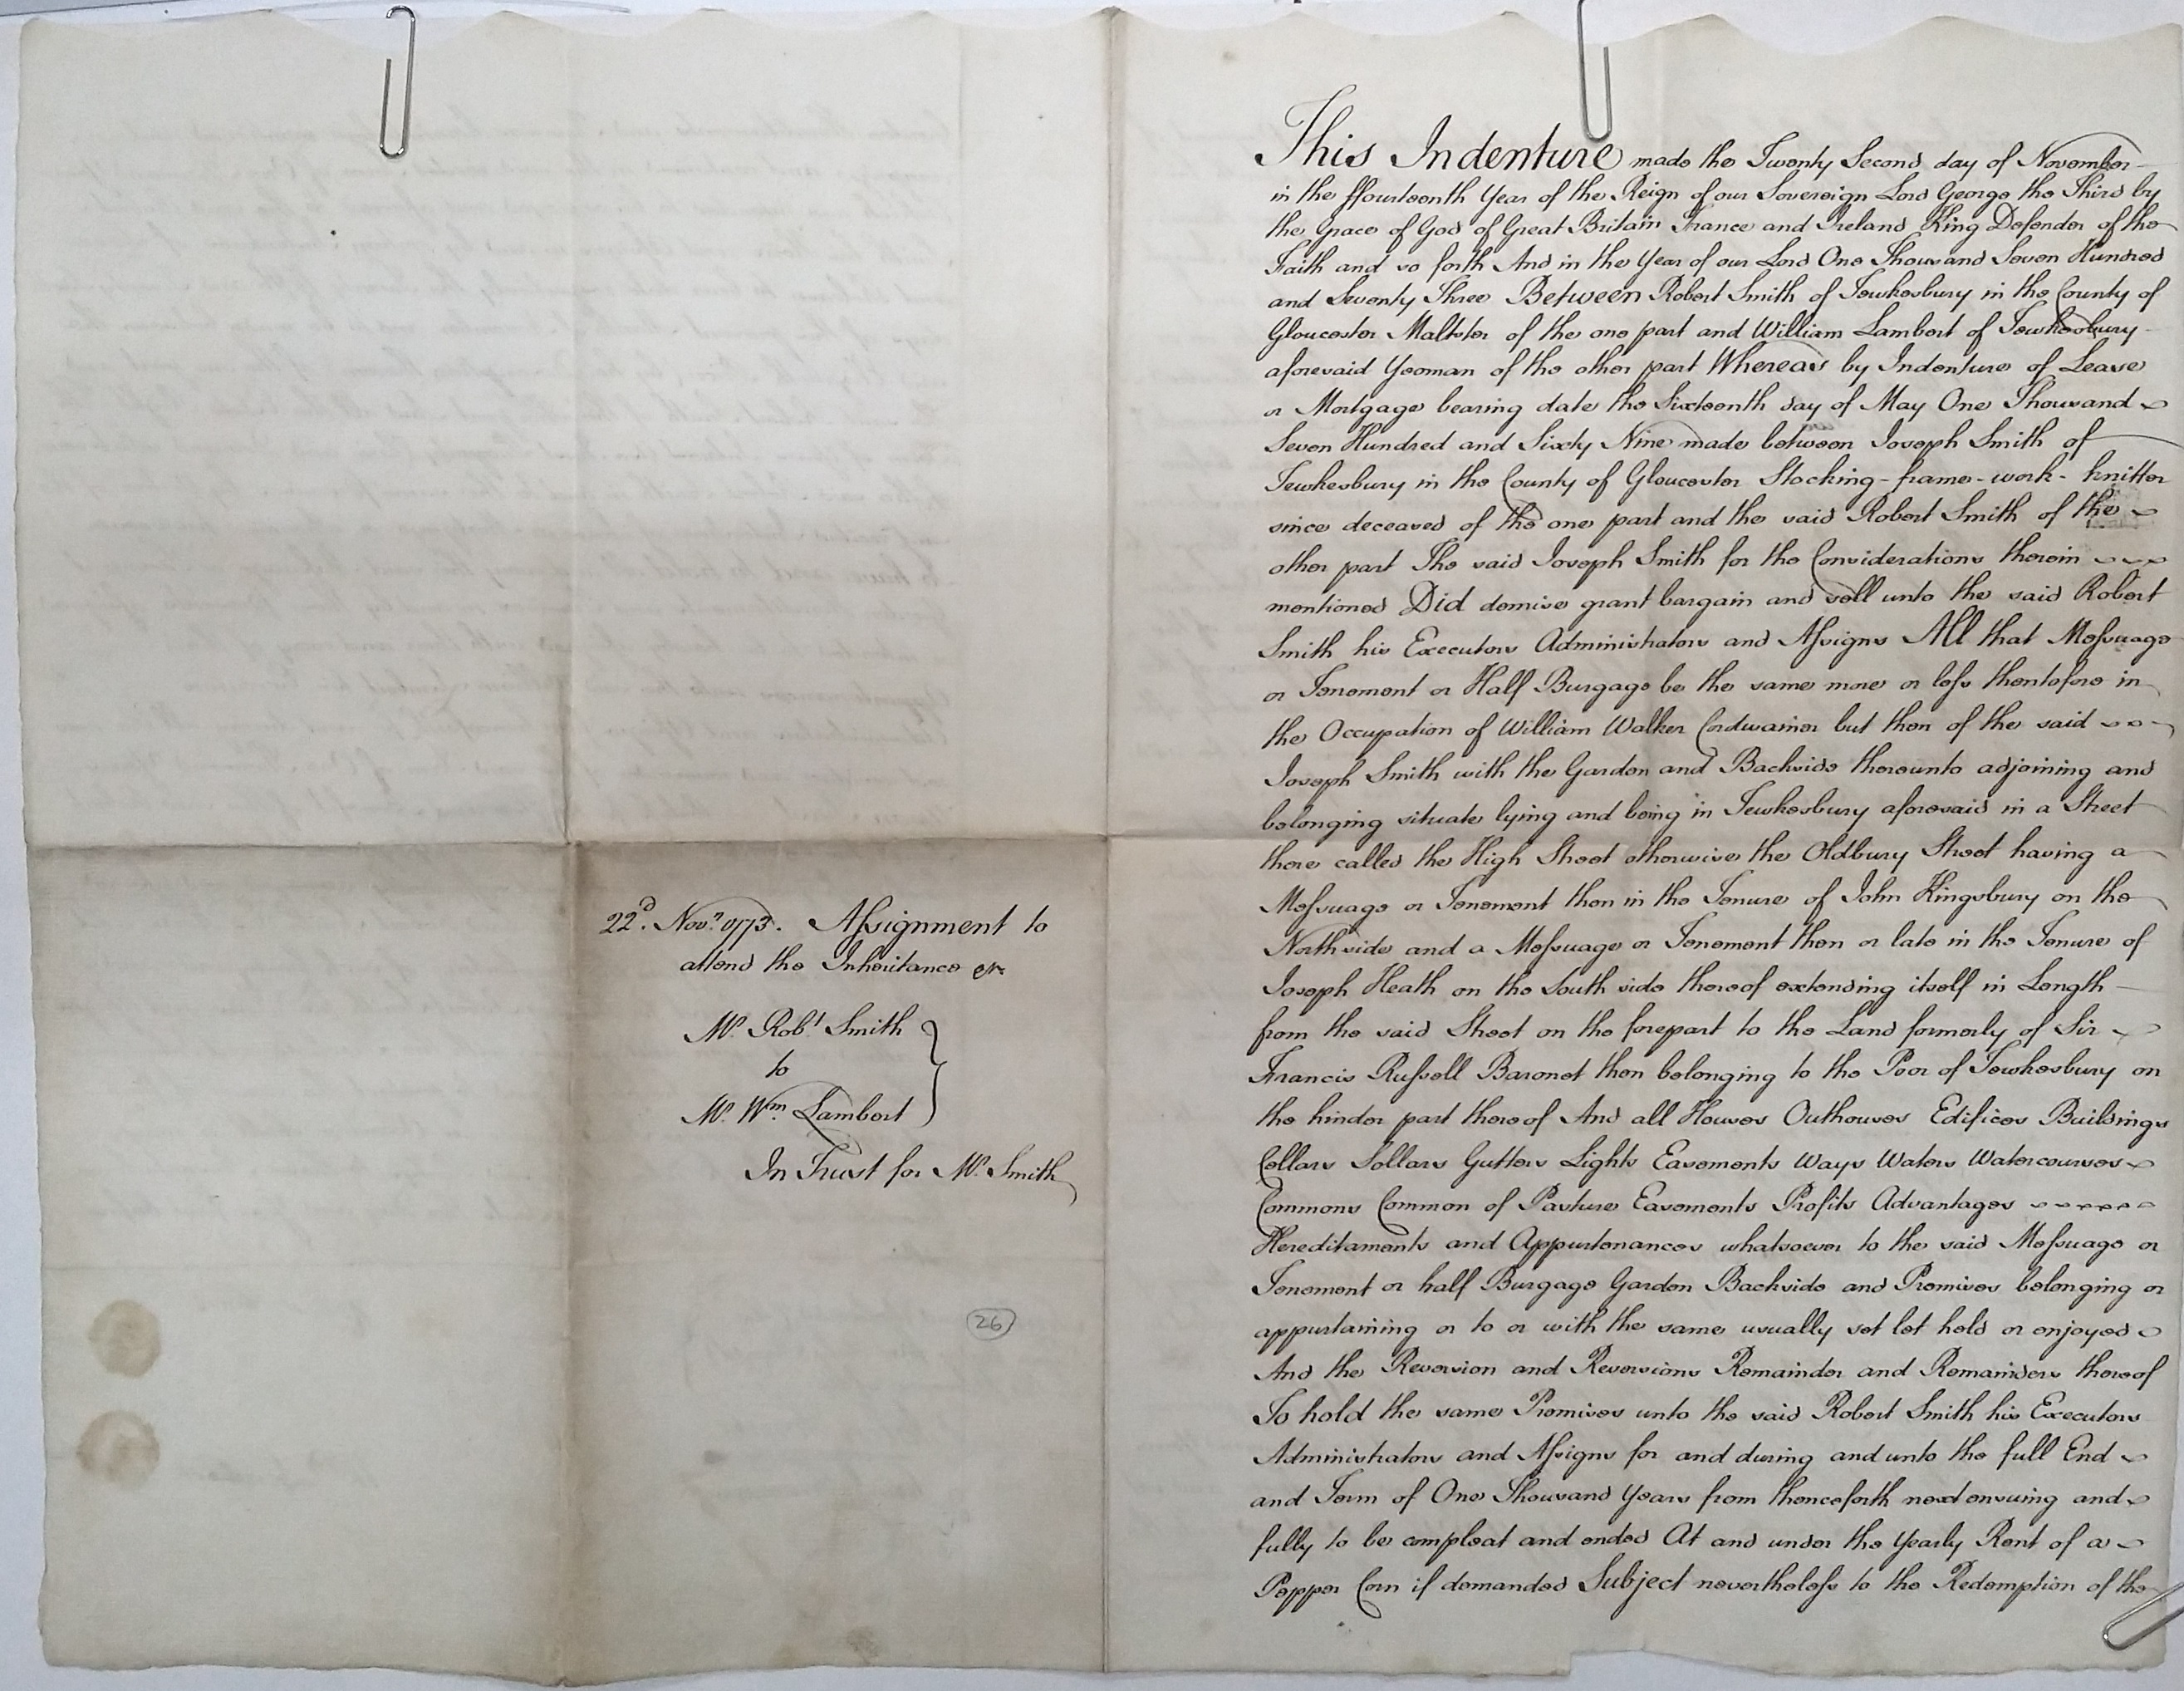 22d. Novr. 1773. Assignment to
attend the Inheritance &c
Mr. Robt Smith
to
Mr. Wm. Lambert
In Trust for Mr. Smith
26
This Indenture made the Twenty Second day of November
in the ffourteenth Year of the Reign of our Sovereign Lord George the Third by
the Grace of God of Great Britain France and Ireland King Defender of the
Faith and so forth And in the Year of our Lord One Thousand Seven Hundred
and Seventy Three Between Robert Smith of Tewkesbury in the County of
Gloucester Maltster of the one part and William Lambert of Tewkesbury
aforesaid Yeoman of the other part Whereas by Indenture of Lease
or Mortgage bearing date the Sixteenth day of May One Thousand
Seven Hundred and Sixty Nine made between Joseph Smith of
Tewkesbury in the County of Gloucester Stocking-frame-work-knitter
since deceased of the one part and the said Robert Smith of the
other part The said Joseph Smith for the Considerations therein
mentioned Did demise grant bargain and sell unto the said Robert
Smith his Executors Administrators and Assigns All that Messuage
or Tenement or Half Burgage be the same more or less thentofore in
the Occupation of William Walker Cordwainer but then of the said
Joseph Smith with the Garden and Backside thereunto adjoining and
belonging situate lying and being in Tewkesbury aforesaid in a Street
there called the High Street otherwise the Oldbury Street having a
Messuage or Tenement then in the Tenure of John Kingsbury on the
North side and a Messuage or Tenement then or late in the Tenure of
Joseph Heath on the South side thereof extending itself in Length
from the said Street on the forepart to the Land formerly of Sir
Francis Russell Baronet then belonging to the Poor of Tewkesbury on
the hinder part thereof And all Houses Outhouses Edifices Buildings
Cellars Sollars Gutters Lights Easements Ways Waters Watercourses
Commons Common of Pasture Easements Profits Advantages
Hereditaments and Appurtenances whatsoever to the said Messuage or
Tenement or half Burgage Garden Backside and Premises belonging or
appurtaining or to or with the same usually set let held or enjoyed
And the Reversion and Reversions Remainder and Remainders thereof
To hold the same Premises unto the said Robert Smith his Executors
Administrators and Assigns for and during and unto the full End
and Term of One Thousand Years from thenceforth next ensuing and
fully to be compleat and ended At and under the Yearly Rent of a
Pepper Corn if demanded Subject nevertheless to the Redemption of the